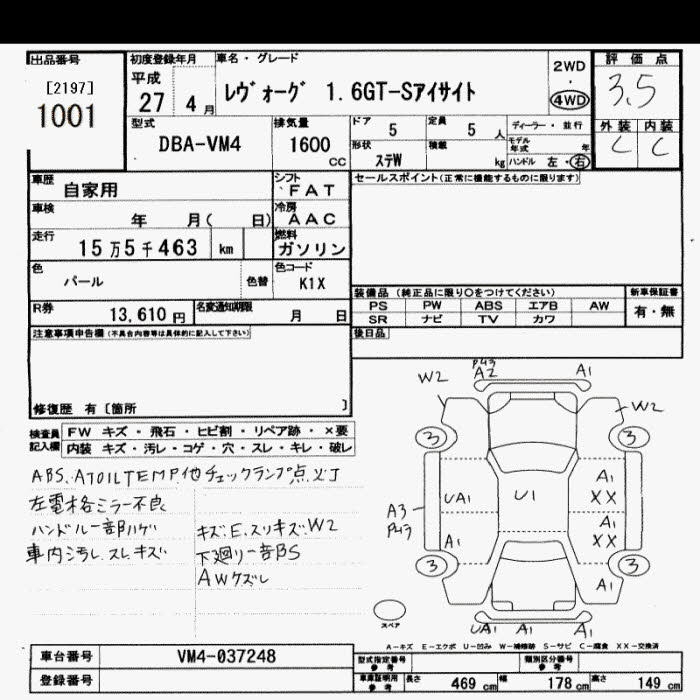 出品番号
[2197]
1001
初度登録年月
平成
27 4月
車名・グレード
レヴォーグ 1.6GT-Sアイサイト
2WD
・
4WD
評価点
3.5
外装 内装
C C
型式
DBA-VM4
排気量
1600
cc
ドア 5
定員 5 人
形状 ステW
積載 kg
ディーラー・並行
モデル年式 年
ハンドル 左・右
車歴 自家用
シフト
FAT
車検 年 月( 日)
冷房
AAC
走行 15万5千463 km
燃料
ガソリン
色 パール
色替
色コード
K1X
R券 13,610円
名変通知期限 月 日
セールスポイント(正常に機能するものに限ります)
装備品(純正品に限り○をつけてください)
PS PW ABS エアB AW
SR ナビ TV カワ
新車保証書
有・無
後日品
注意事項申告欄(不具合内容等は具体的に記入して下さい)
修復歴 有〔箇所 〕
検査員記入欄
FW キズ・飛石・ヒビ割・リペア跡・×要
内装 キズ・汚レ・コゲ・穴・スレ・キレ・破レ
ABS、ATOILTEMP他チェックランプ点灯
左電格ミラー不良
ハンドル一部ハゲ キズ、E、スリキズ、W2
車内汚レ、スレ、キズ 下廻り一部S
AWケズレ
P43
A2 A1
W2 W2
3 3
A1
UA1 U1 XX
A3
P43
A1
A1 XX
3 3
A1
スペア
UA1 A1 A1
A-キズ E-エクボ U-凹み W-補修跡 S-サビ C-腐食 XX-交換済
車台番号 VM4-037248
登録番号
型式指定番号
参考
類別区分番号
参考
車庫証明用
参考
長さ 469 cm 幅 178 cm 高さ 149 cm